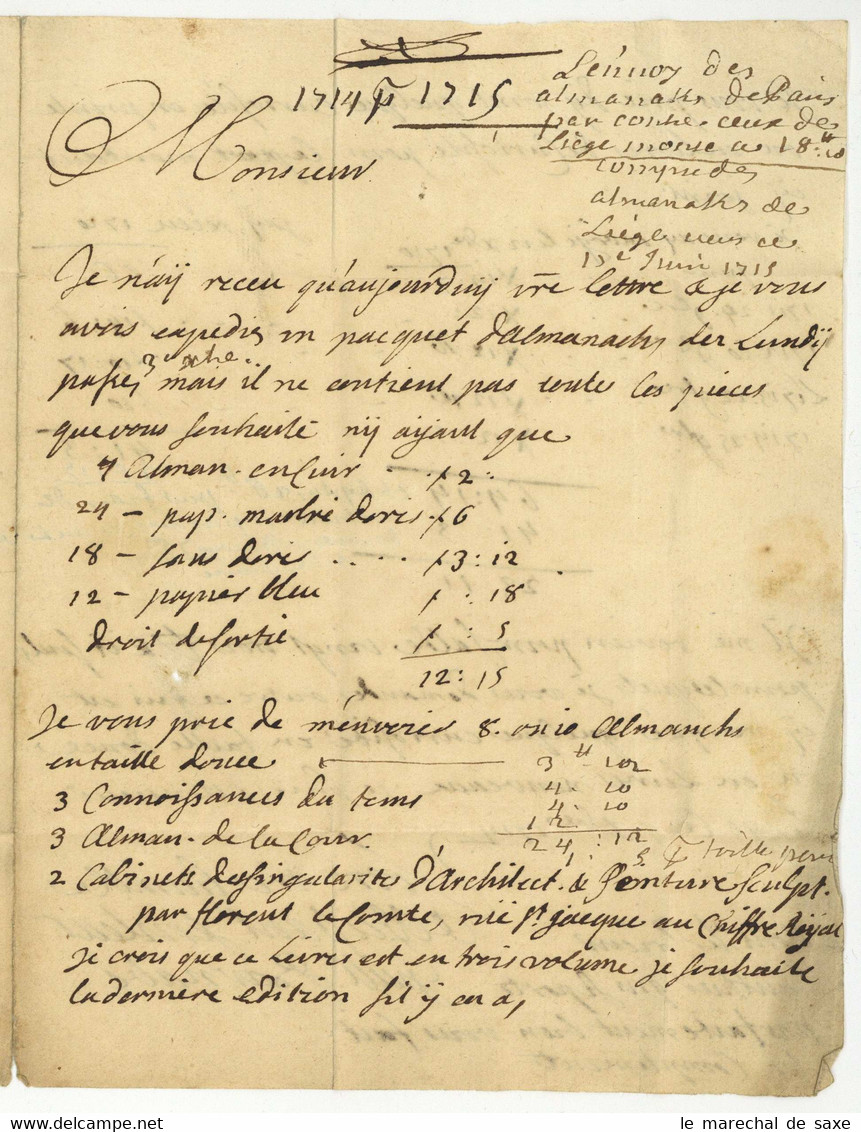 1714 p 1715
L'envoy des
almanaks de Paris
par contre ceux de
Liège monte a 18tt:10
compris des
almanaks de
Liége ce
1715
Monsieur
Je n'aÿ receu qu'aujourduÿ vre lettre & je vous
avois expedies un pacquet d'Almanachs der Lundÿ
passé, mais il ne contient pas toute les pieces
que vous souhaité nÿ aÿant que
4 Alman. en Cuir - 2:
24 - pap. marbré dorés 6
18 - sans doré .... 3:12
12 - papier bleu : 18
droit de sortie : 5
12:15
Je vous prie de m'envoÿer 8. ou 10 Almanchs
en taille douce 3tt 102
3 Connoissances du tems 4. 10
3 Alman. de la Cour. 4: 10
12
24: 12
2 Cabinets de Singularités d'Architect. & Peinture Sculpt.
par florent le Comte, rüe St jacque au Chiffre Roÿal
je crois que ce Livres est en trois volume, je souhaite
la dernière edition s'il ÿ en a,
le marechal de saxe